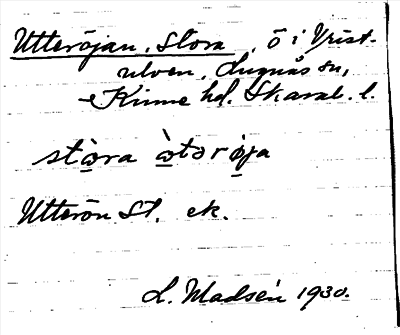 Utteröjan, Stora, ö i Vrist-
ulven, Lugnås sn,
Kinne hd. Skarab. l.
stòra òtərøja
Utterön St. ek.
L. Madsén 1930.